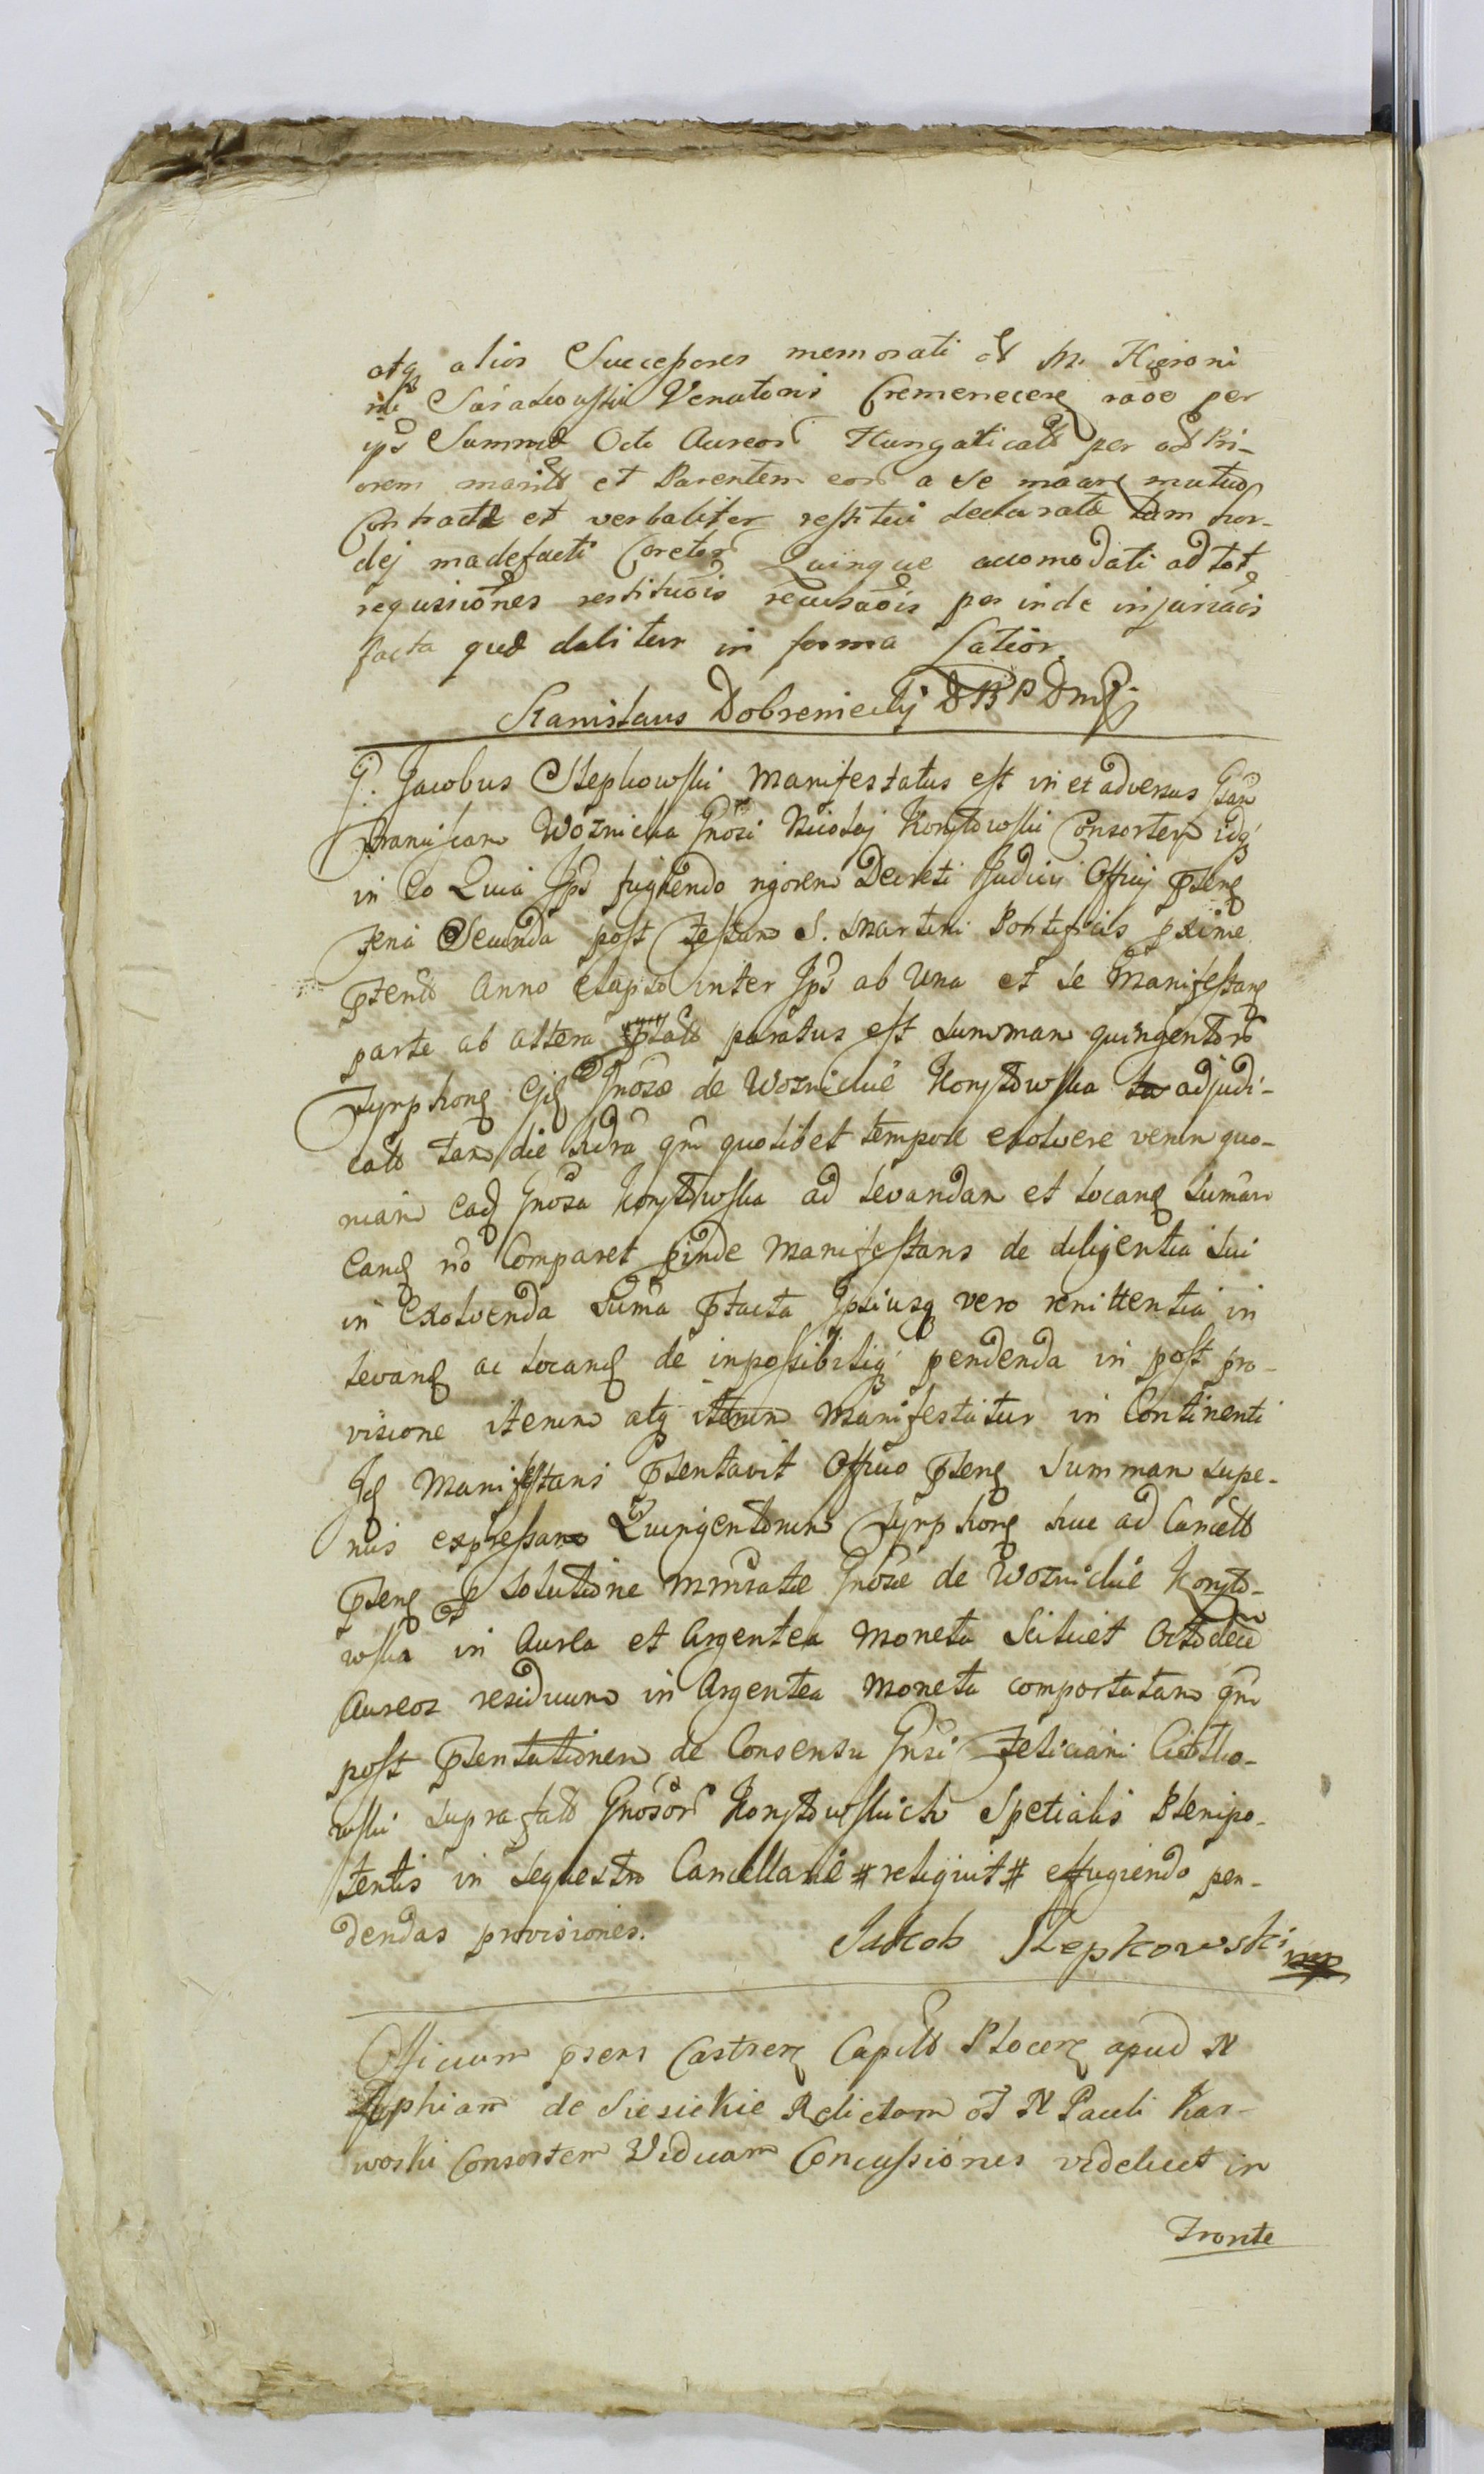 atq alios Successores memorati ol M. Hieroni
mi Saradowski Venatoris Cremenecens raõe per
ips Summæ Octo Aureor Hungaricall per ol Pri-
orem marito et Parentem eor a se maare mutuo
Contractæ et verbaliter restitui declaratæ tam hor-
dej madefacti Coretor Quinque accomodati ad tot
requisiões restituõis recusaõis per inde injuriaõis
facta quæ dabitur in forma Latior.
Stanislaus Dobreniecky
G. Jacobus Stepkowski Manifestatus est in et adversus Gsam
Franciscam Woznicka Gnõsi Nicolaj Konstowski Consortem idq
in Eo Quia Ips fugiendo rigorem Decreti Judicij Officij psens
Feria Secunda post Festum S. Martini Pontificis proxime
pterito Anno elapso inter Ips ab Una et se Manifestans
parte ab altera lato paratus est summam quingentor
Tynphons Ejd Gnosæ de Woznickie Konstowska adjudi-
cato tam die hodra qm quolibet tempore exolvere verum quo-
niam Ead Gnosa Konstowska ad levandam et locand summam
Eand no Comparet pinde Manifestans de diligentia sui
in Exolvenda suma ptacta Ipsiusq vero renittentia in
levand ac locand de inpossibiliq pendenda in post pro-
visione iterum atq iterum Manifestatur in Continenti
Id Manifestans psentavit Officio psens Summam supe-
rius expressam Quingentorum Tynphons huc ad Cancell
psens p solutione mmratæ Gnosæ de Woznickie Konsto-
wska in Aurea et Argentea Moneta Scilicet Octodeci
Aureos residuum in Argentea Moneta comportatam qm
post psentationem de Consensu Gnsi Feliciani Ciotko-
wski suprafato Gnosor Konstowskich Spetialis Plenipo-
tentis in sequestro Cancellariæ # reliquit # effugiendo pen-
dendas provisiones. Jakob Stepkowski mp
Officium psens Castrens Capitl Plocens apud N
Zophiam de Siesickie Relictam ol N Pauli Kar-
woski Consortem Viduam Concussiones videlicet in
Fronte